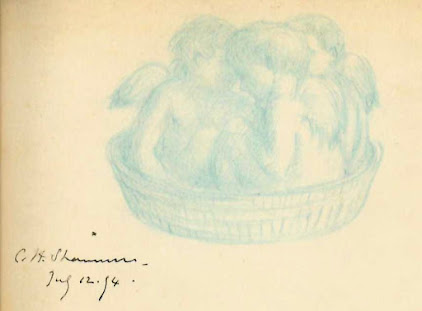 C. H. Shannon
July 12. 94.